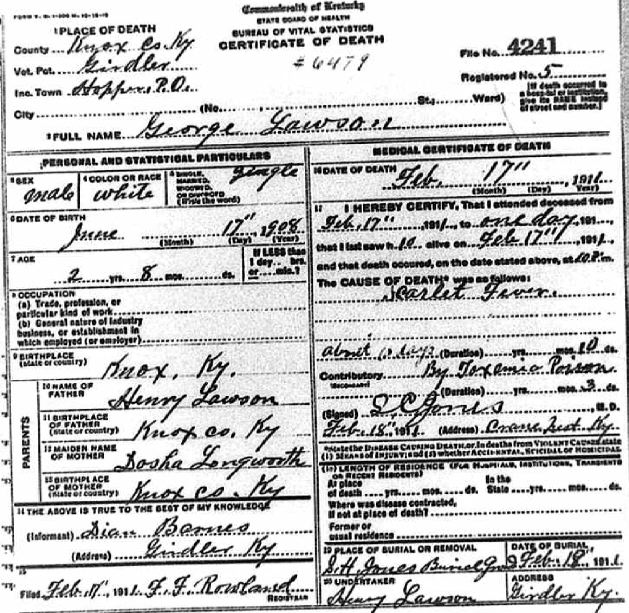 FORM V. S. 1-
Commonwealth of Kentucky
STATE BOARD OF HEALTH
BUREAU OF VITAL STATISTICS
CERTIFICATE OF DEATH
1 PLACE OF DEATH
County Knox Co. Ky
Vot. Pct. Girdler
Inc. Town Hopper P.O.
City (No. St.; Ward)
#6479
File No. 4241
Registered No. 5
[If death occurred in a hospital or institution, give its NAME instead of street and number.]
2 FULL NAME George Lawson
PERSONAL AND STATISTICAL PARTICULARS
3 SEX male
4 COLOR OR RACE white
5 SINGLE, MARRIED, WIDOWED, OR DIVORCED (Write the word) single
6 DATE OF BIRTH
June 17" 1908
(Month) (Day) (Year)
7 AGE
2 yrs. 8 mos. ds.
If LESS than 1 day ... hrs. or ... min.?
8 OCCUPATION
(a) Trade, profession, or particular kind of work
(b) General nature of industry business, or establishment in which employed (or employer)
9 BIRTHPLACE (State or country) Knox, Ky.
PARENTS
10 NAME OF FATHER Henry Lawson
11 BIRTHPLACE OF FATHER (State or country) Knox co. Ky
12 MAIDEN NAME OF MOTHER Dosha Longworth
13 BIRTHPLACE OF MOTHER (State or country) Knox co. Ky
14 THE ABOVE IS TRUE TO THE BEST OF MY KNOWLEDGE
(Informant) Dian Barnes
(Address) Girdler Ky
15 Filed Feb 191 F. F. Rowland
REGISTRAR
MEDICAL CERTIFICATE OF DEATH
16 DATE OF DEATH
Feb. 17" , 1911
(Month) (Day) (Year)
17 I HEREBY CERTIFY, That I attended deceased from
Feb. 17" 1911, to one day, 191
that I last saw h alive on Feb 17" 1911,
and that death occurred, on the date stated above, at m.
The CAUSE OF DEATH* was as follows:
Scarlet Fever.
about days (Duration) yrs. mos. 10 ds.
Contributory By Toxemic Poison
(SECONDARY)
(Duration) yrs. mos. 3 ds.
(Signed) Jones M. D.
Feb. 18" 191 (Address) Crane Nest Ky.
*State the DISEASE CAUSING DEATH, or, in deaths from VIOLENT CAUSES state (1) MEANS OF INJURY; and (2) whether ACCIDENTAL, SUICIDAL or HOMICIDAL.
18 LENGTH OF RESIDENCE (FOR HOSPITALS, INSTITUTIONS, TRANSIENTS OR RECENT RESIDENTS)
At place of death yrs. mos. ds. In the State yrs. mos. ds.
Where was disease contracted, if not at place of death?
Former or usual residence
19 PLACE OF BURIAL OR REMOVAL
Jones Burial
DATE OF BURIAL
Feb 18, 1911
20 UNDERTAKER
Henry Lawson
ADDRESS
Girdler Ky.